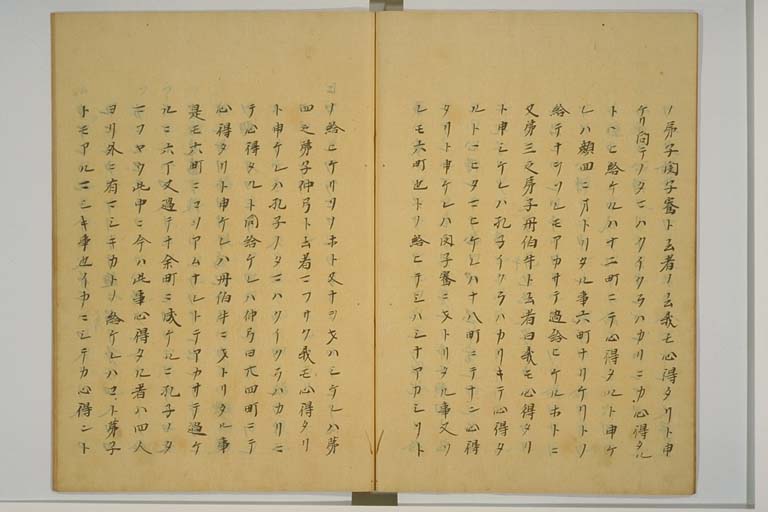 ノ弟子閔子騫ト云者ノ云我モ心得タリト申
ケリ向テノタマハクイクラハカリニカ心得タル
トトヒ給ケルハ十二町ニテ心得タルト申ケ
レハ顔回ニオトリタル事六町ナリケリトノ
給テナヲソレモアカサテ過給ヒケルホトニ
又第三之弟子冉伯牛ト云者曰我モ心得タリ
ト申シケレハ孔子イクラハカリキテ心得タ
ルトノタマヒケレハ十八町ニテナン心得
タリト申ケレハ閔子騫ニヲトリタル事又
モ六町也トノ給ヒテ
ノ給ヒケリソノホト又ナヲユキ シケレハ第
四之弟子仲弓ト云者マフサク我モ心得タリ
ト申ケレハ孔子ノタマハクイクラハカリニ
テ心得タルト問給ケレハ仲弓曰 四町ニテ
心得タリト申ケレハ冉伯牛ニヲトリタル事
是モ六町ニコソアムナレトテアカサテ過ケ
ルニ六丁又過テ十余町ニ成ケルニ孔子ノタ
マフヤウ此中ニ今ハ此事心得タル者ハ四人
ヨリ外ニ有マシキカトノ給ケレハマコト弟子
トモアルマシキ事也イカニシテカ心得ント